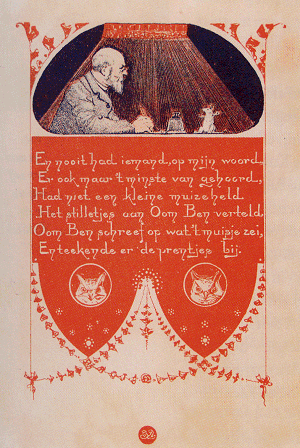 En nooit had iemand, op mijn woord,
Er ook maar 't minste van gehoord,
Had niet een kleine muizeheld
Het stilletjes aan Oom Ben verteld.
Oom Ben schreef op wat 't muisje zei,
En teekende er de prentjes bij.